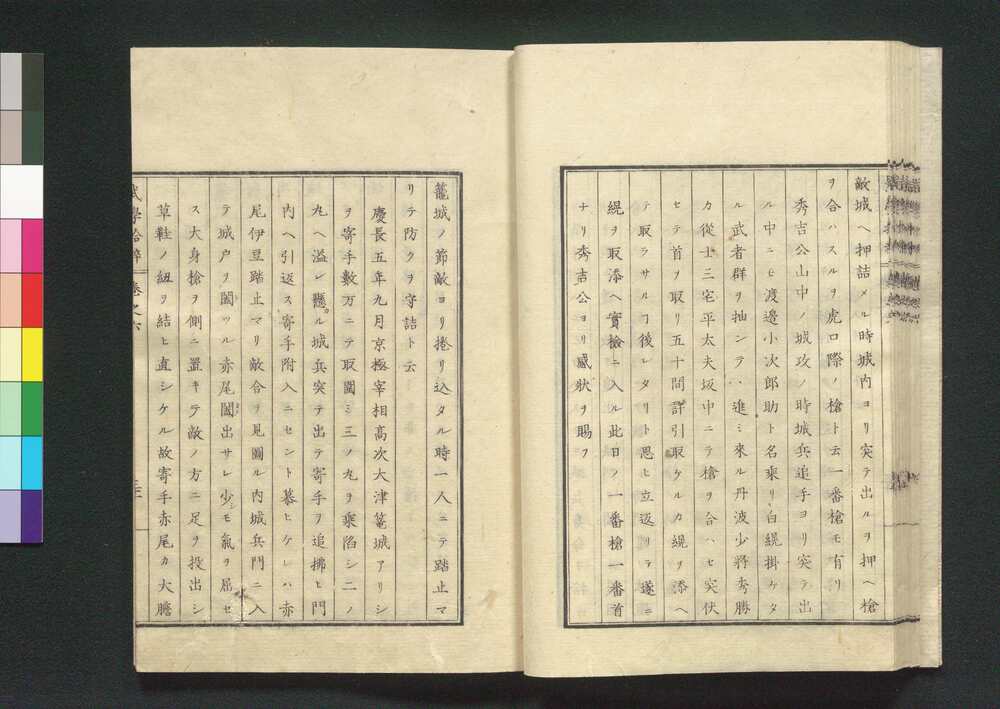 敵城ヘ押詰メル時城内ヨリ突テ出ルヲ押ヘ槍
ヲ合ハスルヲ虎口際ノ槍ト云一番槍モ有リ
秀吉公山中ノ城攻ノ時城兵追手ヨリ突テ出
ル中ニモ渡邊小次郎助ト名乗リ白緄掛ケタ
ル武者群ヲ抽ンテハ進ミ来ル丹波少將秀勝
カ従士三宅平太夫坂中ニテ槍ヲ合ハセ突伏
セテ首ヲ取リ五十間許引取ケルカ緄ヲ添ヘ
テ取ラサルヿ後レタリト思ヒ立返リテ遂ニ
緄ヲ取添ヘ實檢ニ入ル此日ノ一番槍一番首
ナリ秀吉公ヨリ感状ヲ賜フ
籠城ノ節敵ヨリ捲リ込タル時一人ニテ踏止マ
リテ防クヲ守詰ト云
慶長五年九月京極宰相高次大津篭城アリシ
ヲ寄手數万ニテ取圍ミ三ノ丸ヲ乗陥シ二ノ
丸ヘ溢レ懸ル城兵突テ出テ寄手ヲ追拂ヒ門
内ヘ引返ス寄手附入ニセント慕ヒケレハ赤
尾伊豆踏止マリ敵合ヲ見圖ル内城兵門ニ入
テ城戸ヲ闔ツル赤尾闔出サレ少シモ氣ヲ屈セ
ス大身槍ヲ側ニ置キテ敵ノ方ニ足ヲ投出シ
草鞋ノ紐ヲ結ヒ直シケル故寄手赤尾カ大膽
武學拾粹 卷之六